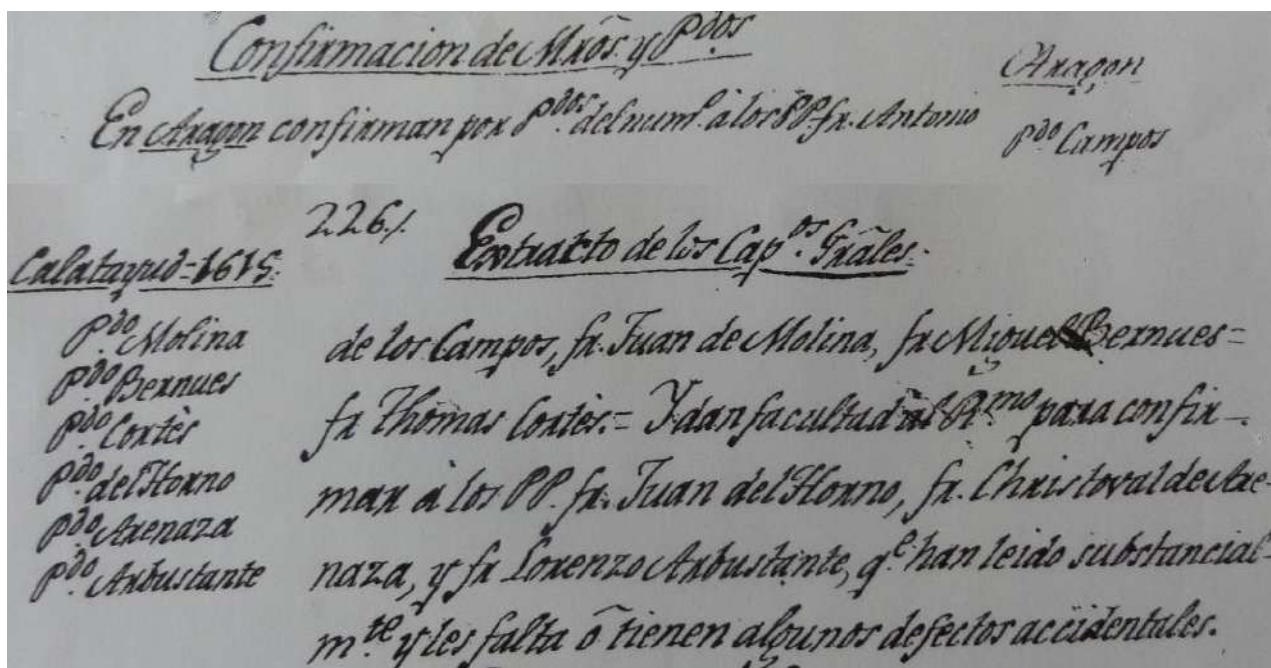 Confirmacion de Mrõs. y P.dos
Aragon
En Aragon confirman por P.dos del num.º à los PP. fr. Antonio
P.do Campos
226./.
Extracto de los Cap.os Grâles.
Calatayud=1615.
P.do Molina
P.do Bernues
P.do Cortès
P.do del Horno
P.do Arenaza
P.do Arbustante
de los Campos, fr. Juan de Molina, fr Miguel Bernues=
fr Thomas Cortès.= Y dan facultad al R.mo para confir-
mar à los PP. fr. Juan del Horno, fr. Christoval de Are-
naza, y fr Lorenzo Arbustante, q.e han leido substancial-
m.te y les falta ô tienen algunos defectos accidentales.